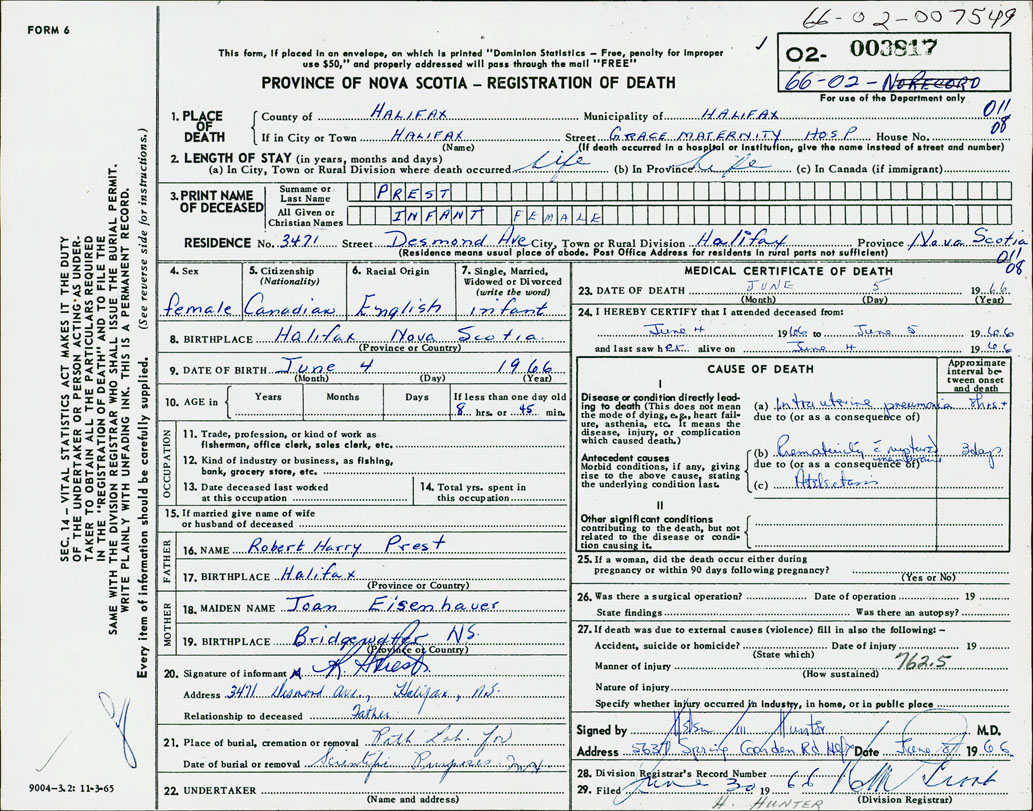 66-02-007549
FORM 6
This form, if placed in an envelope, on which is printed "Dominion Statistics – Free, penalty for improper
use $50," and properly addressed will pass through the mail "FREE"
✓
02- 003817
66-02- NO RECORD
For use of the Department only
PROVINCE OF NOVA SCOTIA – REGISTRATION OF DEATH
1. PLACE OF DEATH
County of HALIFAX Municipality of HALIFAX 011
08
If in City or Town HALIFAX Street GRACE MATERNITY HOSP House No.
(Name) (If death occurred in a hospital or institution, give the name instead of street and number)
2. LENGTH OF STAY (in years, months and days)
(a) In City, Town or Rural Division where death occurred Life (b) In Province Life (c) In Canada (if immigrant)
3. PRINT NAME OF DECEASED
Surname or Last Name PREST
All Given or Christian Names INFANT FEMALE
RESIDENCE No. 3471 Street Desmond Ave City, Town or Rural Division Halifax Province Nova Scotia
(Residence means usual place of abode. Post Office Address for residents in rural parts not sufficient)
011
08
4. Sex female
5. Citizenship (Nationality) Canadian
6. Racial Origin English
7. Single, Married, Widowed or Divorced (write the word) infant
8. BIRTHPLACE Halifax Nova Scotia
(Province or Country)
9. DATE OF BIRTH June 4 1966
(Month) (Day) (Year)
10. AGE in Years Months Days If less than one day old
8 hrs. or 45 min.
OCCUPATION
11. Trade, profession, or kind of work as
fisherman, office clerk, sales clerk, etc.
12. Kind of industry or business, as fishing,
bank, grocery store, etc.
13. Date deceased last worked
at this occupation
14. Total yrs. spent in
this occupation
15. If married give name of wife
or husband of deceased
FATHER
16. NAME Robert Harry Prest
17. BIRTHPLACE Halifax
(Province or Country)
MOTHER
18. MAIDEN NAME Joan Eisenhauer
19. BIRTHPLACE Bridgewater NS.
(Province or Country)
20. Signature of informant R Prest
Address 3471 Desmond Ave., Halifax, N.S.
Relationship to deceased Father
21. Place of burial, cremation or removal Path Lab. for
Date of burial or removal Scientific Purposes
22. UNDERTAKER
(Name and address)
MEDICAL CERTIFICATE OF DEATH
23. DATE OF DEATH JUNE 5 1966
(Month) (Day) (Year)
24. I HEREBY CERTIFY that I attended deceased from:
June 4 1966 to June 5 1966
and last saw her alive on June 4 1966
CAUSE OF DEATH
Approximate interval between onset and death
I
Disease or condition directly leading to death (This does not mean the mode of dying, e.g., heart failure, asthenia, etc. It means the disease, injury, or complication which caused death.)
(a) Intrauterine pneumonia 8hrs+
due to (or as a consequence of)
Antecedent causes
Morbid conditions, if any, giving rise to the above cause, stating the underlying condition last.
(b) Prematurity c̄ ruptured membranes 3 days
due to (or as a consequence of)
(c) Atelectasis
II
Other significant conditions
contributing to the death, but not
related to the disease or condition causing it.
25. If a woman, did the death occur either during
pregnancy or within 90 days following pregnancy?
(Yes or No)
26. Was there a surgical operation? Date of operation 19
State findings Was there an autopsy?
27. If death was due to external causes (violence) fill in also the following: –
Accident, suicide or homicide? Date of injury 19
(State which)
Manner of injury 762.5
(How sustained)
Nature of injury
Specify whether injury occurred in Industry, in home, or in public place
Signed by Hunter M.D.
Address 5637 Spring Garden Rd Hfx Date June 8 1966
28. Division Registrar's Record Number
29. Filed June 30 1966
(Division Registrar)
H. HUNTER
SEC. 14 – VITAL STATISTICS ACT MAKES IT THE DUTY
OF THE UNDERTAKER OR PERSON ACTING AS UNDER-
TAKER TO OBTAIN ALL THE PARTICULARS REQUIRED
IN THE "REGISTRATION OF DEATH" AND TO FILE THE
SAME WITH THE DIVISION REGISTRAR WHO SHALL ISSUE THE BURIAL PERMIT.
WRITE PLAINLY WITH UNFADING INK. THIS IS A PERMANENT RECORD.
Every item of information should be carefully supplied. (See reverse side for instructions.)
9004–3.2: 11-3-65